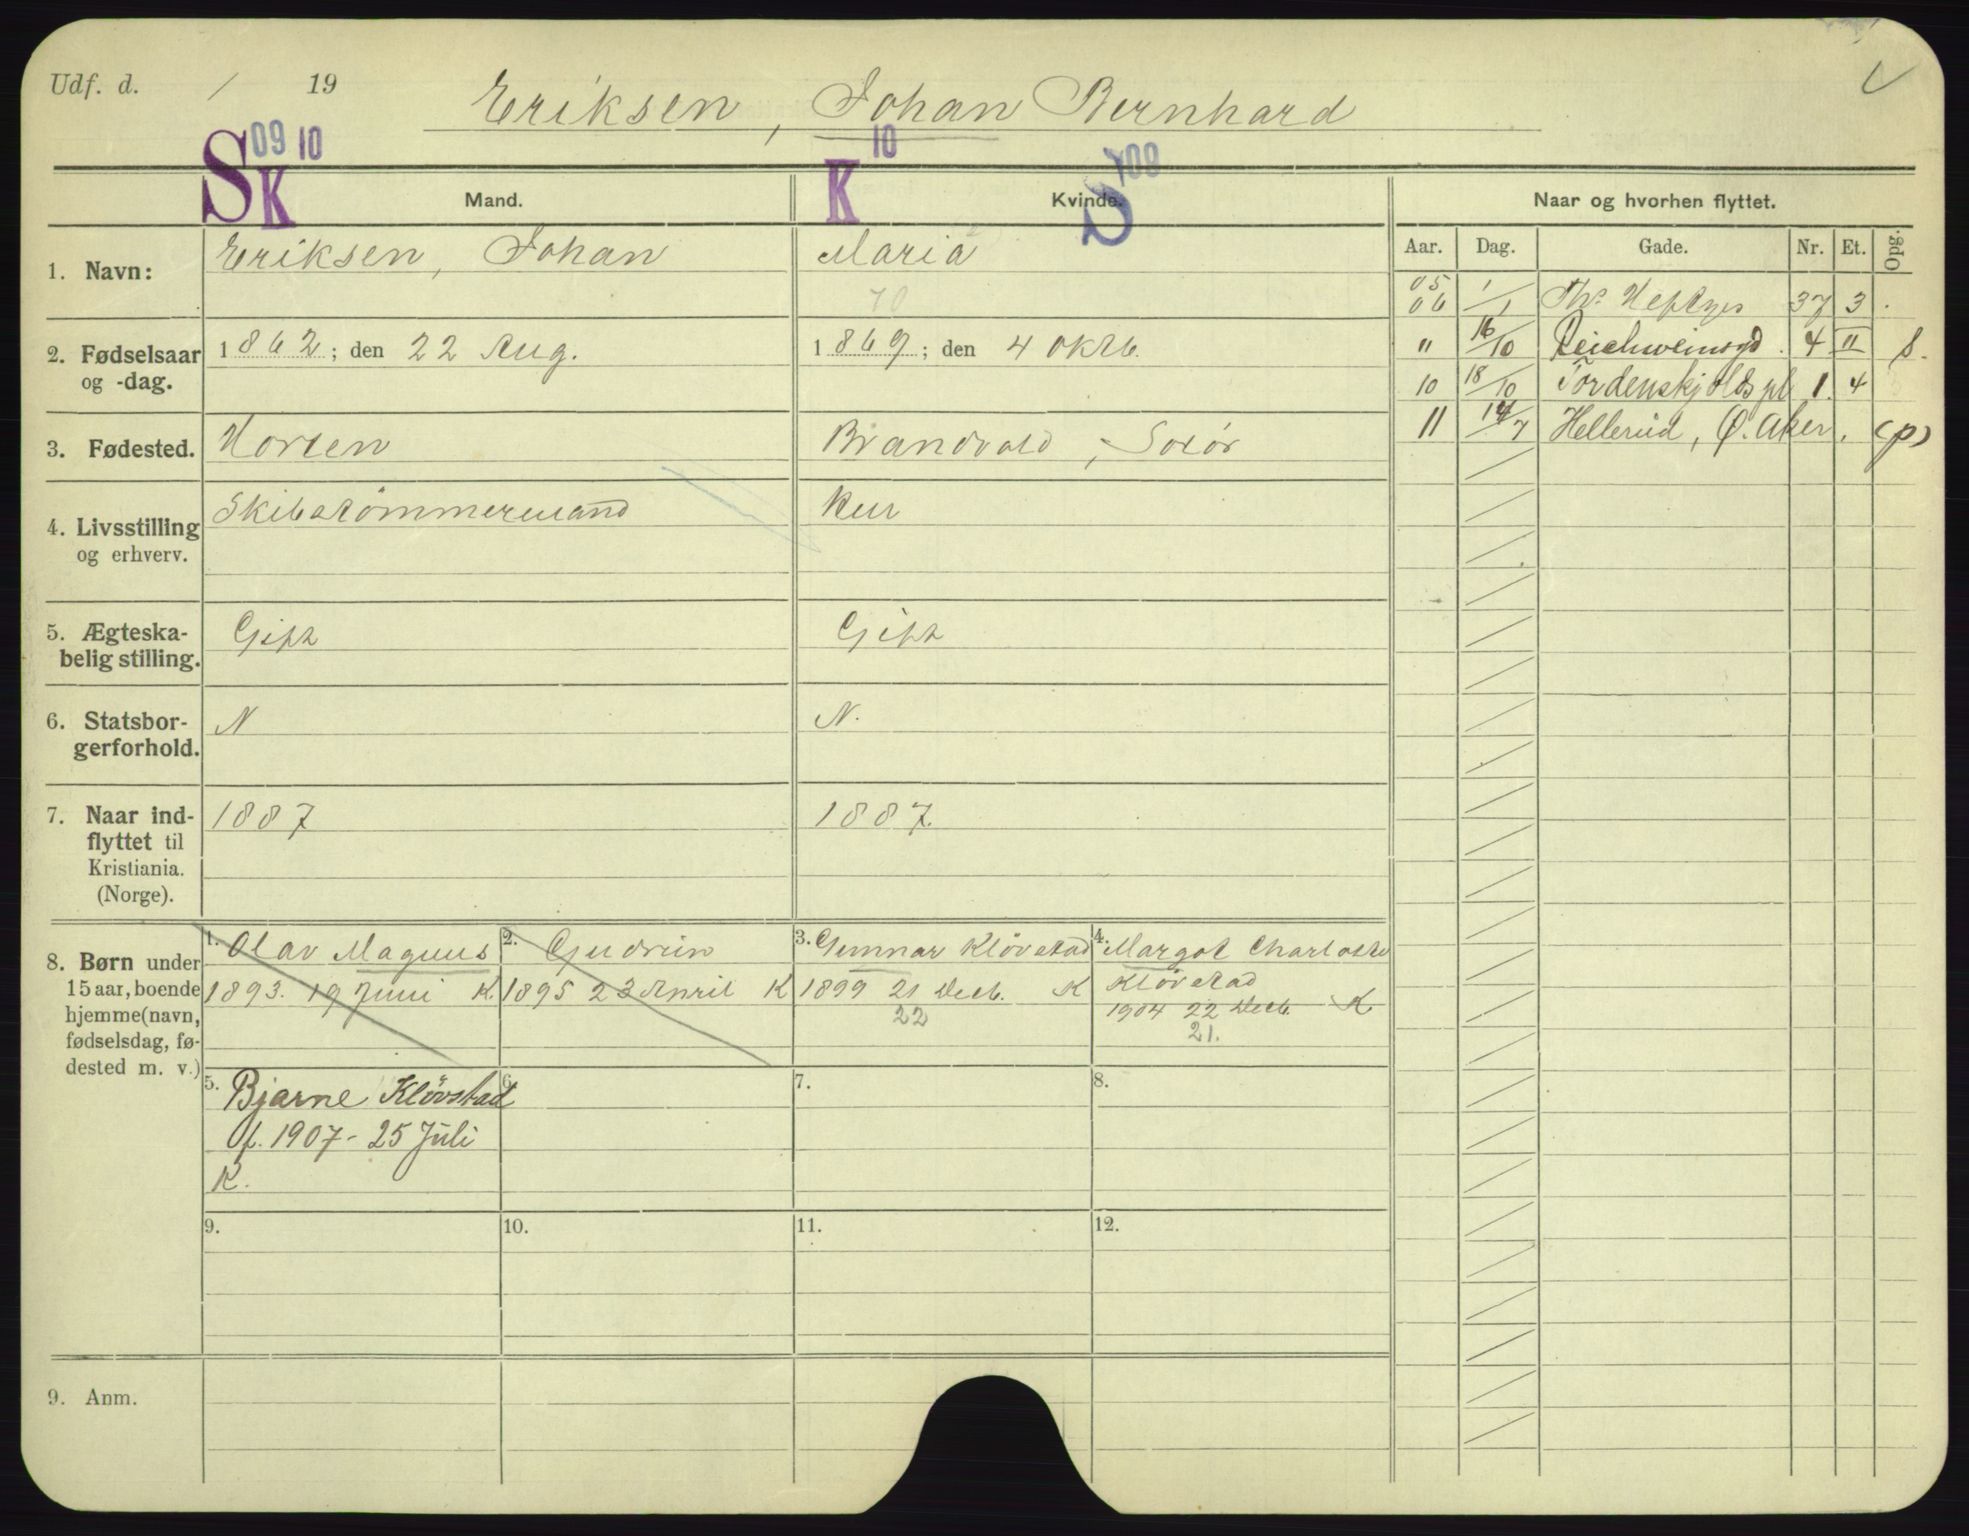 Udf. d. / 19
Eriksen, Johan Bernhard
S 09 K 10
K 10
S 09
Mand.
Kvinde.
Naar og hvorhen flyttet.
Aar. Dag. Gade. Nr. Et. Opg.
1. Navn: Eriksen, Johan
Maria
70
2. Fødselsaar og -dag.
1862; den 22 Aug.
1869; den 4 Oktb.
3. Fødested. Horten
Brandvold, Solør
4. Livsstilling og erhverv.
Skibstømmermand
Hur
5. Ægteskabelig stilling.
Gift
Gift
6. Statsborgerforhold.
N
N.
7. Naar indflyttet til Kristiania. (Norge).
1887
1887.
8. Børn under 15 aar, boende hjemme (navn, fødselsdag, fødested m. v.)
1. Olav Magnus
1893. 19 Juni K.
2. Gudrun
1895 23 April K
3. Gunnar Kløvstad
1899 21 Decb. K
22
4. Margot Charlotte
Kløvstad
1904 22 Decb. K
21.
5. Bjarne Klövstad
f. 1907 - 25 Juli
K.
6.
7.
8.
9.
10.
11.
12.
9. Anm.
05
06 1/1 Ths. Heftyes 37 3 .
" 16/10 Reichweinsgd. 4 II S.
10 18/10 Tordenskjolds pl 1. 4
11 14/7 Hellerud, Ø. Aker. (p)